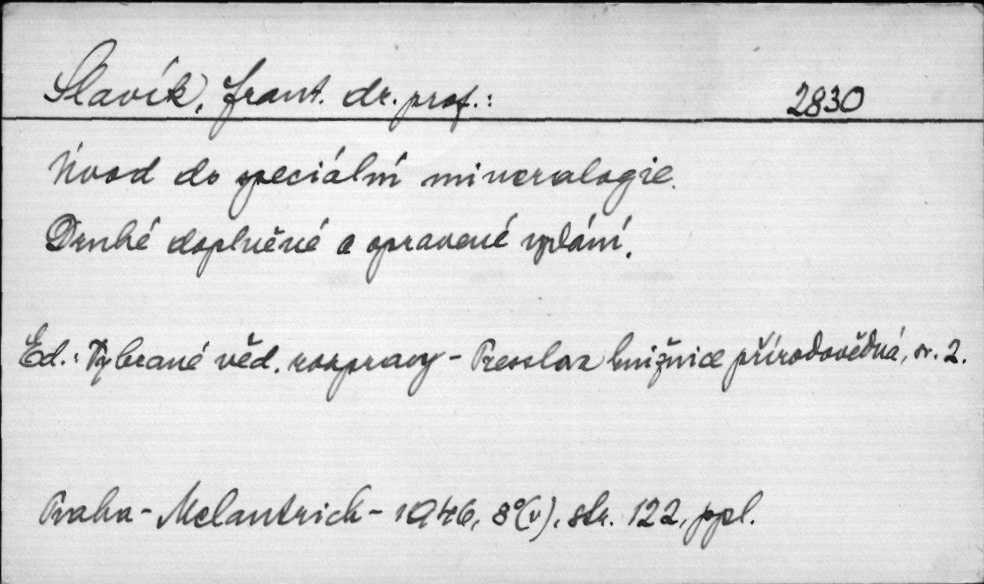 Slavík, Frant. dr. prof.: 2830
Úvod do speciální mineralogie.
Druhé doplněné a opravené vydání.
Ed.: Vybrané věd. rozpravy - Preslova knižnice přírodovědná, sv. 2.
Praha - Melantrich - 1946, 8°(v), str. 122, ppl.